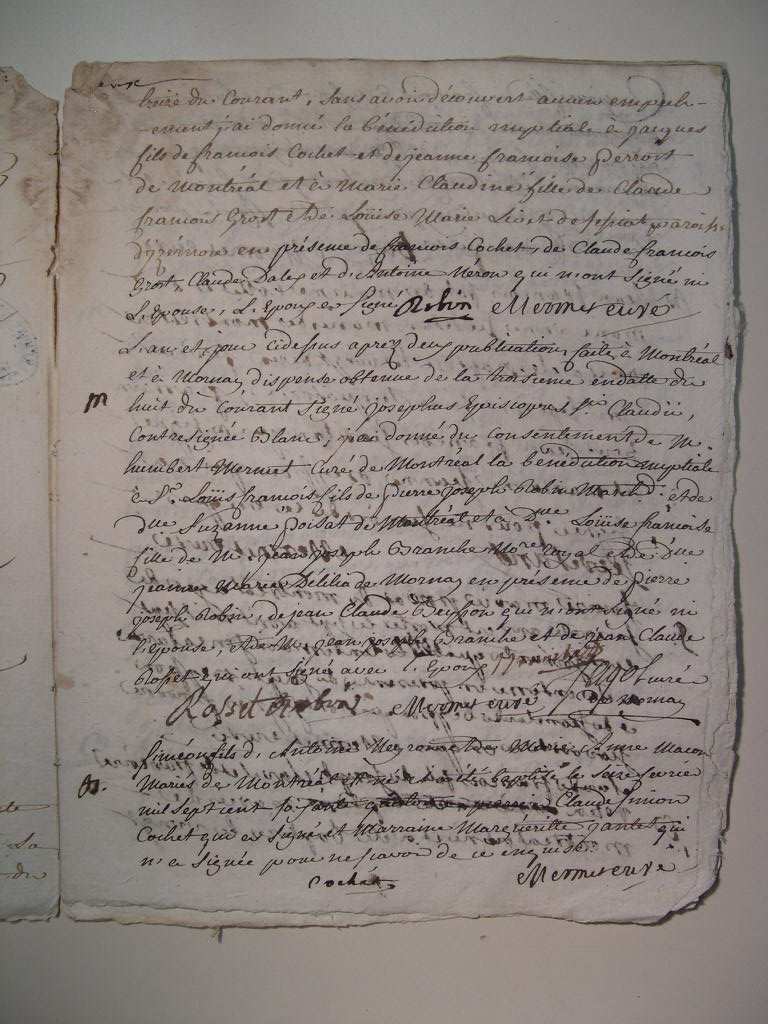 treize du Courant, sans avoir découvert aucun empech-
-ement j'ai donné la bénédiction nuptiale à jacques
fils de francois Cochet et de jeanne francoise perrost
de Montréal et à Marie Claudine fille de Claude
francois Grost et de Loüise Marie paroisse
en présence de francois Cochet, de Claude francois
Grost, Claude Dales et d'Antoine Néron qui n'ont signé ni
L'Epouse, L'Epoux a signé Robin Mermet curé
L'an et jour cidessus aprez deux publications faites à Montréal
et à Mornay dispense obtenue de la troisiéme endatte du
M huit du courant signé josephus Episcopus Sti Claudii,
contresignée Blanc, j'ai donné du consentement de M.
humbert Mermet curé de Montréal la bénédiction nuptiale
à Sr. Loüis francois fils de pierre joseph Robin March.d et de
Due Suzanne poisat de Montréal et à Due Loüise francoise
fille de Mr. jean joseph Branche Nore royal et de Due
jeanne Marie Délilia de Mornay en présence de pierre
joseph Robin, de jean Claude Beysson qui n'ont signé ni
l'épouse, et de M. jean joseph Branche et de jean Claude
Rosset qui ont signé avec l'Epoux
Rosset Robin Mermet curé curé de Mornay
Siméon fils d'Antoine Meyronnet de Marie Anne Macon
B. Mariés de Montréal est né et a été baptisé le seize fevrier
mil sept cent soixante Claude Simeon
Cochet qui a signé et Marraine Marguerite jantet qui
n'a signée pour ne scavoir de ce enquise.
Cochet Mermet curé